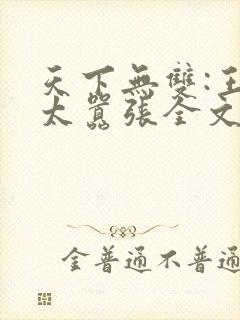 天下無雙:王
太囂張全文
金普通不普通